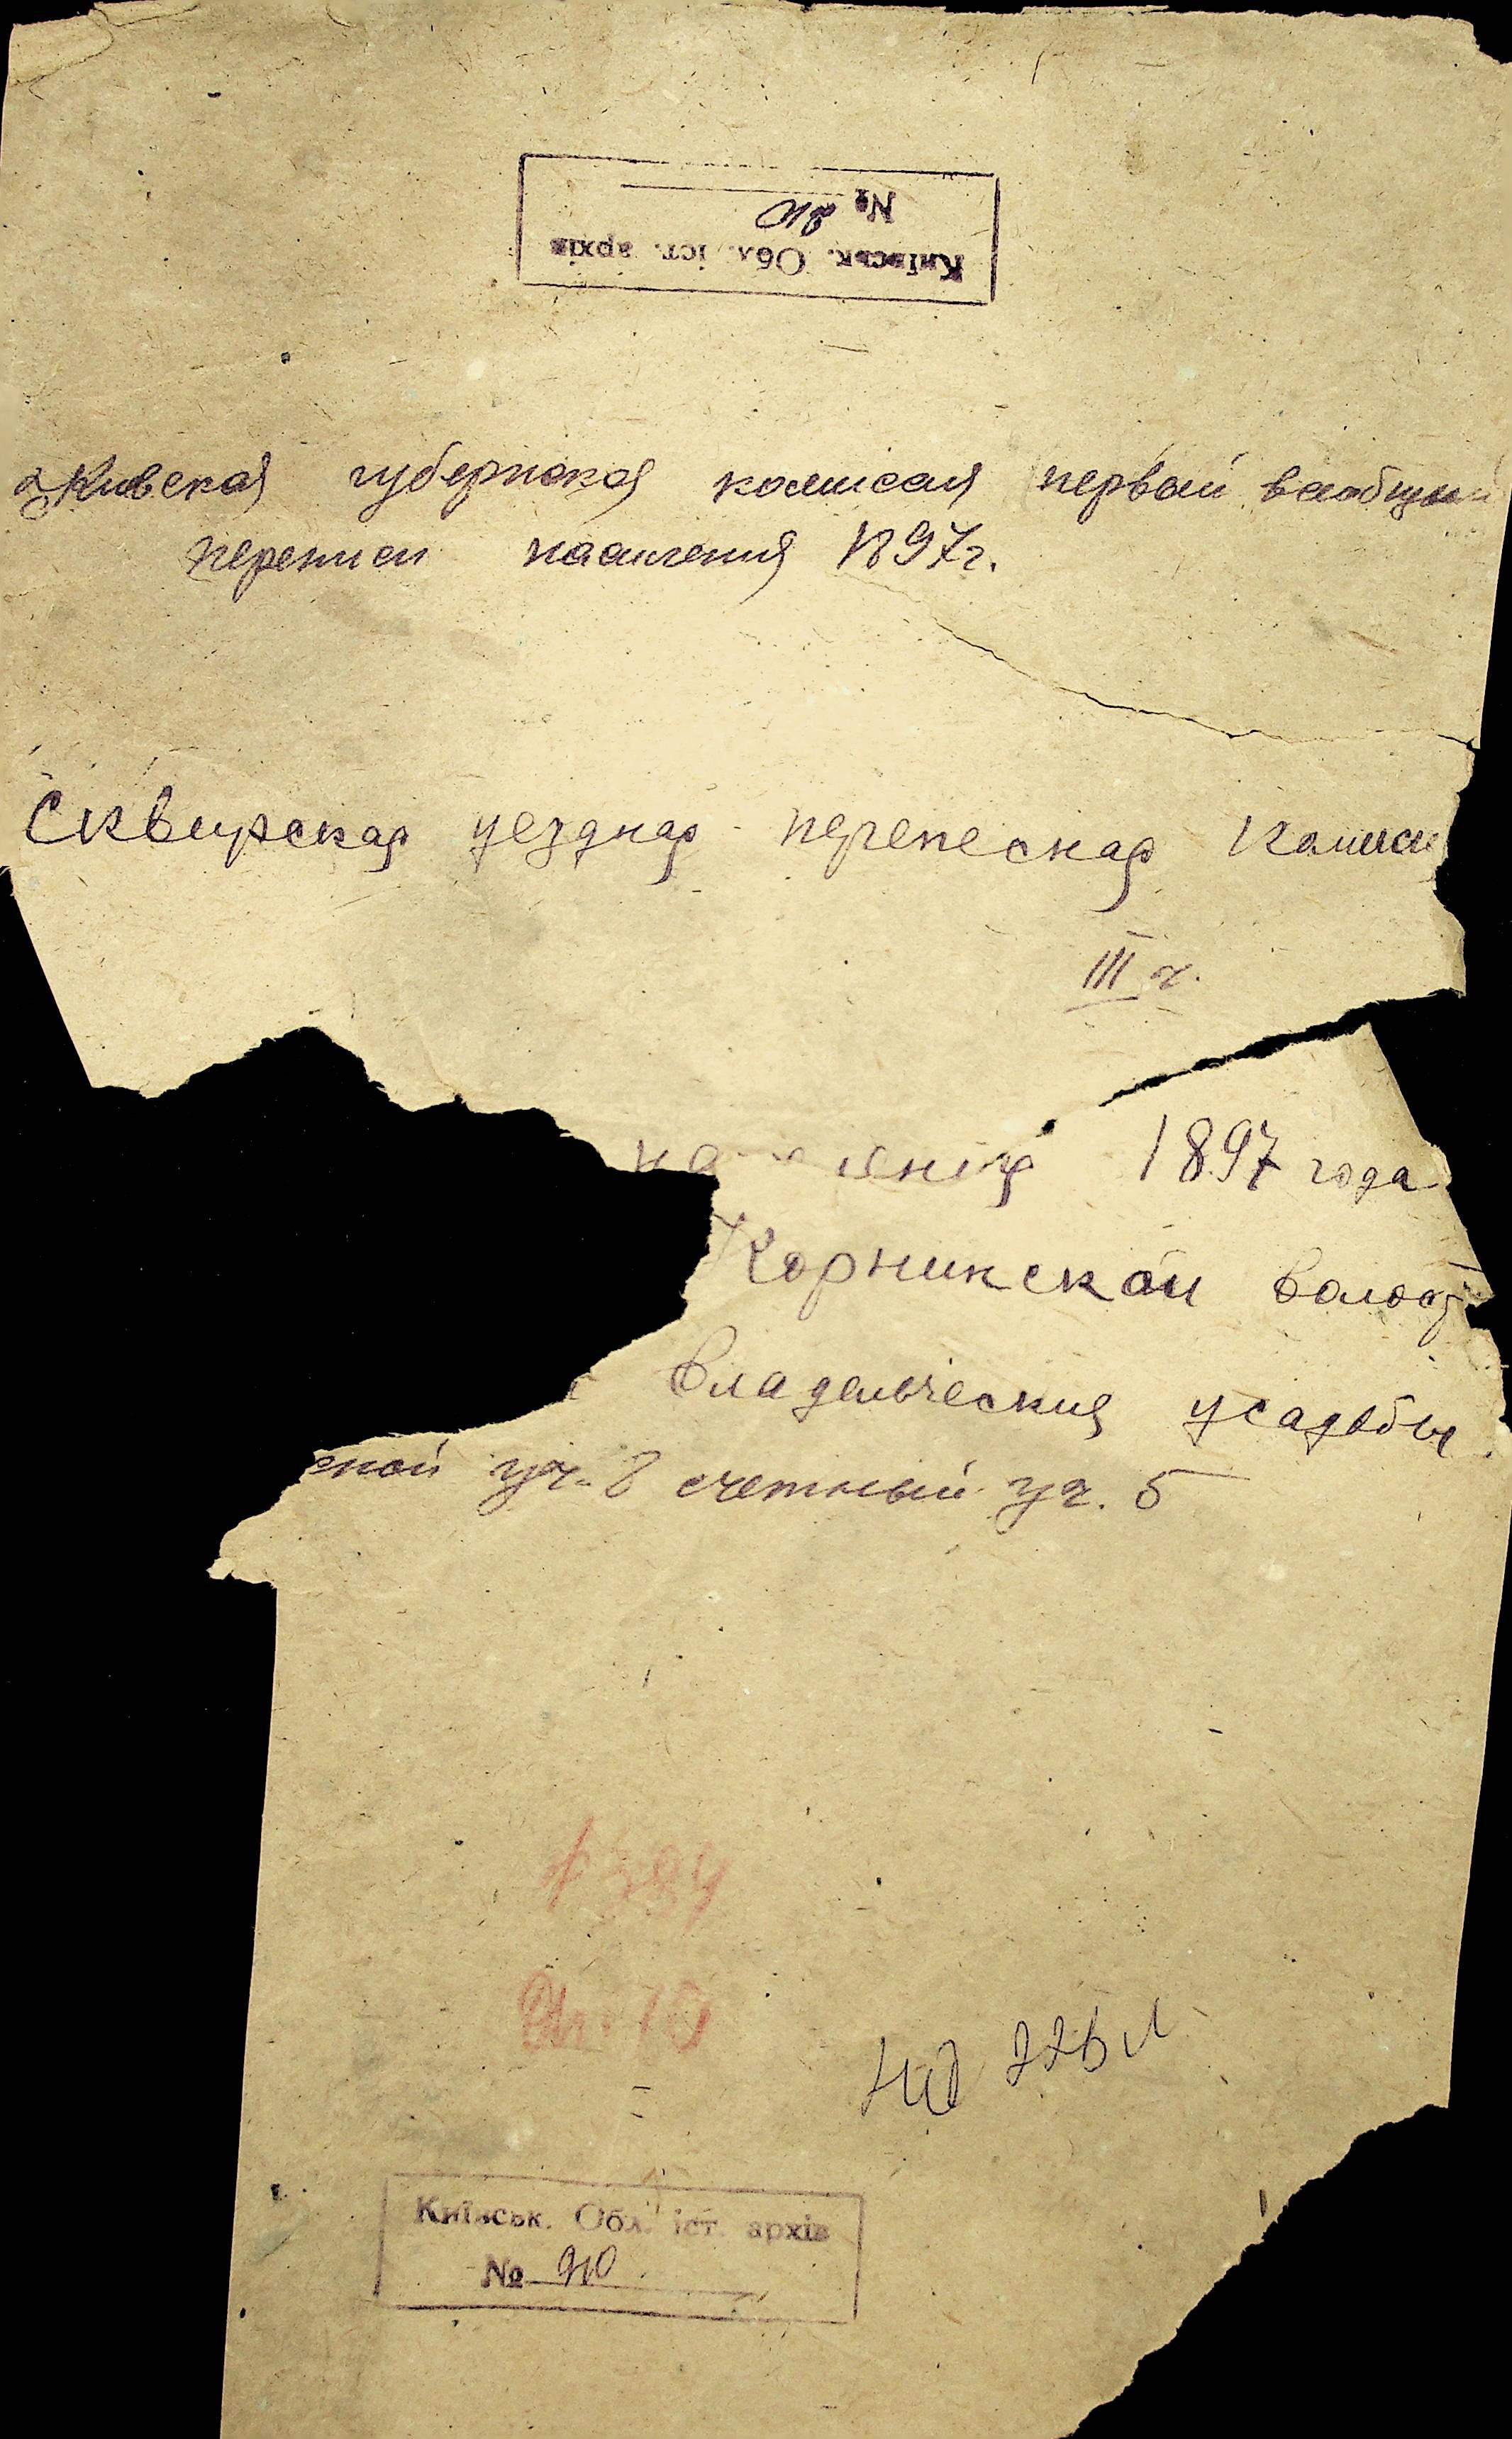 Київськ. Обл. іст. архів
№ 210
Киевская губернская комиссия первый всеобщий
переписи населения 1897г.
Сквирская уездная переписная Комисси
III ч.
1897 года
Корнинской волост
владельческия усадьбы.
ской уч. 8 счетный уч. 5
Київськ. Обл. іст. архів
№ 210